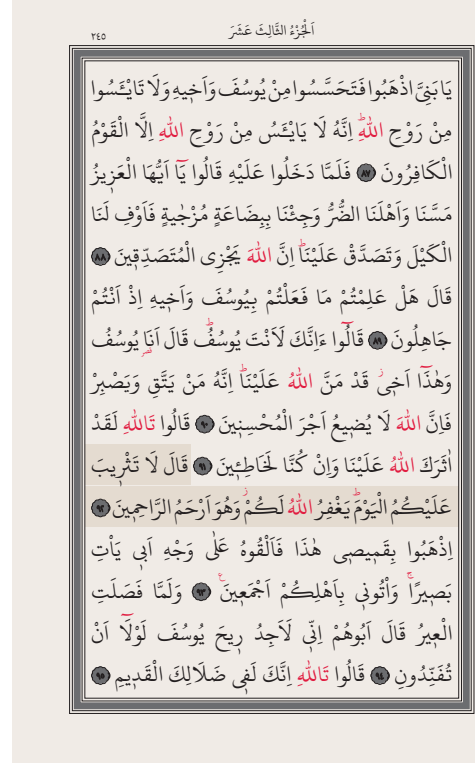 ٢٤٥
اَلْجُزْءُ الثَّالِثَ عَشَرَ
يَا بَنِيَّ اذْهَبُوا فَتَحَسَّسُوا مِنْ يُوسُفَ وَاَخ۪يهِ وَلَا تَايْـَٔسُوا
مِنْ رَوْحِ اللّٰهِۜ اِنَّهُ لَا يَايْـَٔسُ مِنْ رَوْحِ اللّٰهِ اِلَّا الْقَوْمُ
الْكَافِرُونَ ﴿٨٧﴾ فَلَمَّا دَخَلُوا عَلَيْهِ قَالُوا يَٓا اَيُّهَا الْعَز۪يزُ
مَسَّنَا وَاَهْلَنَا الضُّرُّ وَجِئْنَا بِبِضَاعَةٍ مُزْجٰيةٍ فَاَوْفِ لَنَا
الْكَيْلَ وَتَصَدَّقْ عَلَيْنَاۜ اِنَّ اللّٰهَ يَجْزِي الْمُتَصَدِّق۪ينَ ﴿٨٨﴾
قَالَ هَلْ عَلِمْتُمْ مَا فَعَلْتُمْ بِيُوسُفَ وَاَخ۪يهِ اِذْ اَنْتُمْ
جَاهِلُونَ ﴿٨٩﴾ قَالُٓوا ءَاِنَّكَ لَاَنْتَ يُوسُفُۜ قَالَ اَنَا۬ يُوسُفُ
وَهٰذَٓا اَخ۪يۘ قَدْ مَنَّ اللّٰهُ عَلَيْنَاۜ اِنَّهُ مَنْ يَتَّقِ وَيَصْبِرْ
فَاِنَّ اللّٰهَ لَا يُض۪يعُ اَجْرَ الْمُحْسِن۪ينَ ﴿٩٠﴾ قَالُوا تَاللّٰهِ لَقَدْ
اٰثَرَكَ اللّٰهُ عَلَيْنَا وَاِنْ كُنَّا لَخَاطِـ۪ٔينَ ﴿٩١﴾ قَالَ لَا تَثْر۪يبَ
عَلَيْكُمُ الْيَوْمَۜ يَغْفِرُ اللّٰهُ لَكُمْۘ وَهُوَ اَرْحَمُ الرَّاحِم۪ينَ ﴿٩٢﴾
اِذْهَبُوا بِقَم۪يص۪ي هٰذَا فَاَلْقُوهُ عَلٰى وَجْهِ اَب۪ي يَاْتِ
بَص۪يرًاۚ وَاْتُون۪ي بِاَهْلِكُمْ اَجْمَع۪ينَ۟ ﴿٩٣﴾ وَلَمَّا فَصَلَتِ
الْع۪يرُ قَالَ اَبُوهُمْ اِنّ۪ي لَاَجِدُ ر۪يحَ يُوسُفَ لَوْلَٓا اَنْ
تُفَنِّدُونِ ﴿٩٤﴾ قَالُوا تَاللّٰهِ اِنَّكَ لَف۪ي ضَلَالِكَ الْقَد۪يمِ ﴿٩٥﴾